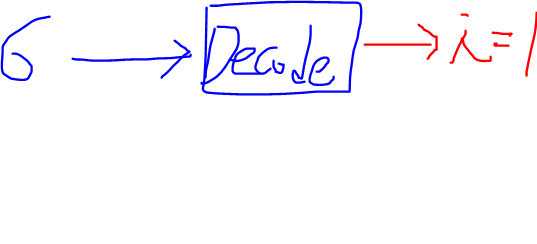 6 → Decode → i=1